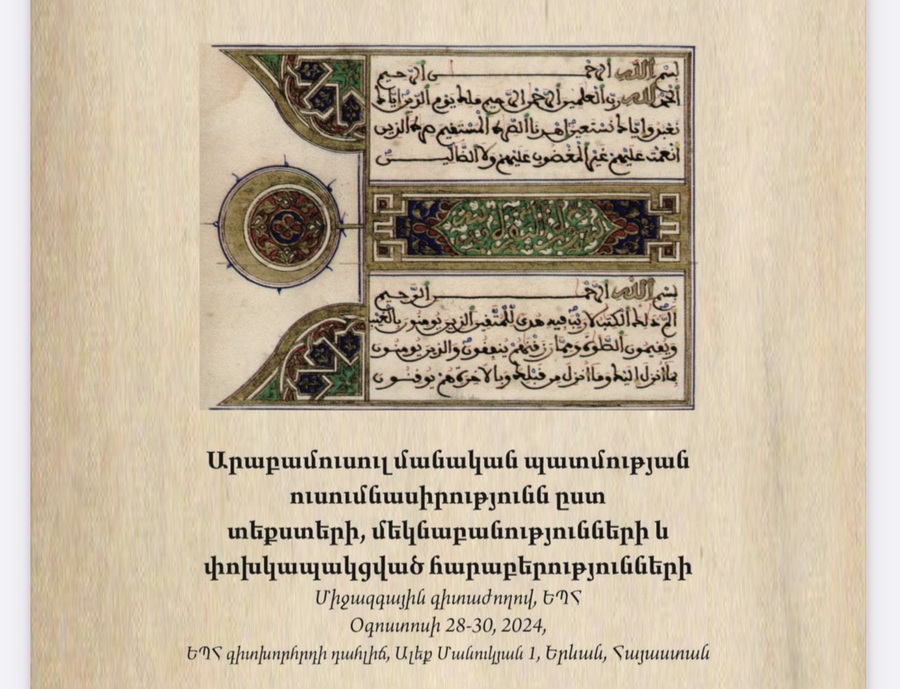 بسم الله الرحمن الرحيم
الحمد لله رب العلمين الرحمن الرحيم ملك يوم الدين اياك
نعبد واياك نستعين اهدنا الصرط المستقيم صرط الذين
انعمت عليهم غير المغضوب عليهم ولا الضالين
بسم الله الرحمن الرحيم
الم ذلك الكتب لا ريب فيه هدى للمتقين الذين يومنون بالغيب
ويقيمون الصلوة ومما رزقنهم ينفقون والذين يومنون
بما انزل اليك وما انزل من قبلك وبالاخرة هم يوقنون
Արաբամուսուլմանական պատմության
ուսումնասիրությունն ըստ
տեքստերի, մեկնաբանությունների և
փոխկապակցված հարաբերությունների
Միջազգային գիտաժողով, ԵՊՀ
Օգոստոսի 28-30, 2024,
ԵՊՀ գիտխորհրդի դահլիճ, Ալեք Մանուկյան 1, Երևան, Հայաստան